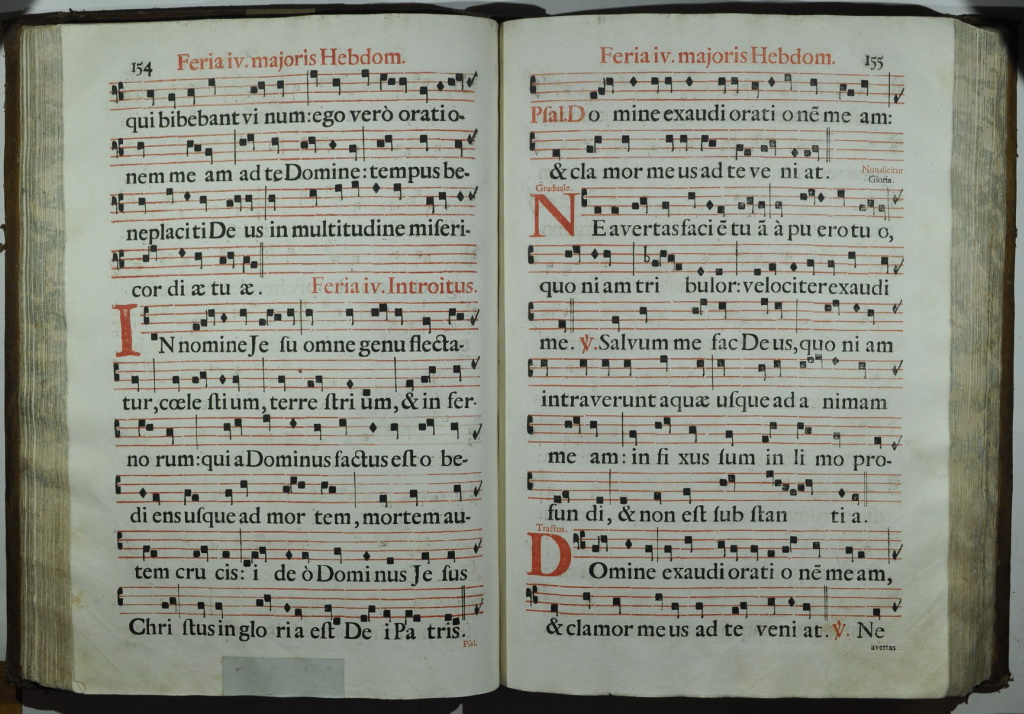 154 Feria iv. majoris Hebdom.
qui bibebant vi num: ego verò oratio-
nem me am ad te Domine: tempus be-
neplaciti De us in multitudine miseri-
cor di æ tu æ. Feria iv. Introitus.
IN nomine Je ſu omne genu flecta-
tur, cœle ſti um, terre ſtri ūm, & in fer-
no rum: qui a Dominus factus eſt o be-
di ens uſque ad mor tem, mortem au-
tem cru cis: i de ò Domi nus Je ſus
Chri ſtus in glo ri a eſt De i Pa tris.
Pſal.
Feria iv. majoris Hebdom. 155
Pſal. Do mine exaudi orati onē me am:
& cla mor me us ad te ve ni at. Non dicitur Gloria.
Graduale.
NE avertas faci ē tu ā à pu ero tu o,
quo ni am tri bulor: velociter exaudi
me. ℣. Salvum me fac De us, quo ni am
intraverunt aquæ uſque ad a nimam
me am: in fi xus ſum in li mo pro-
fun di, & non eſt ſub ſtan ti a.
Tractus.
DOmine exaudi orati o nē me am,
& clamor me us ad te veni at. ℣. Ne
avertas